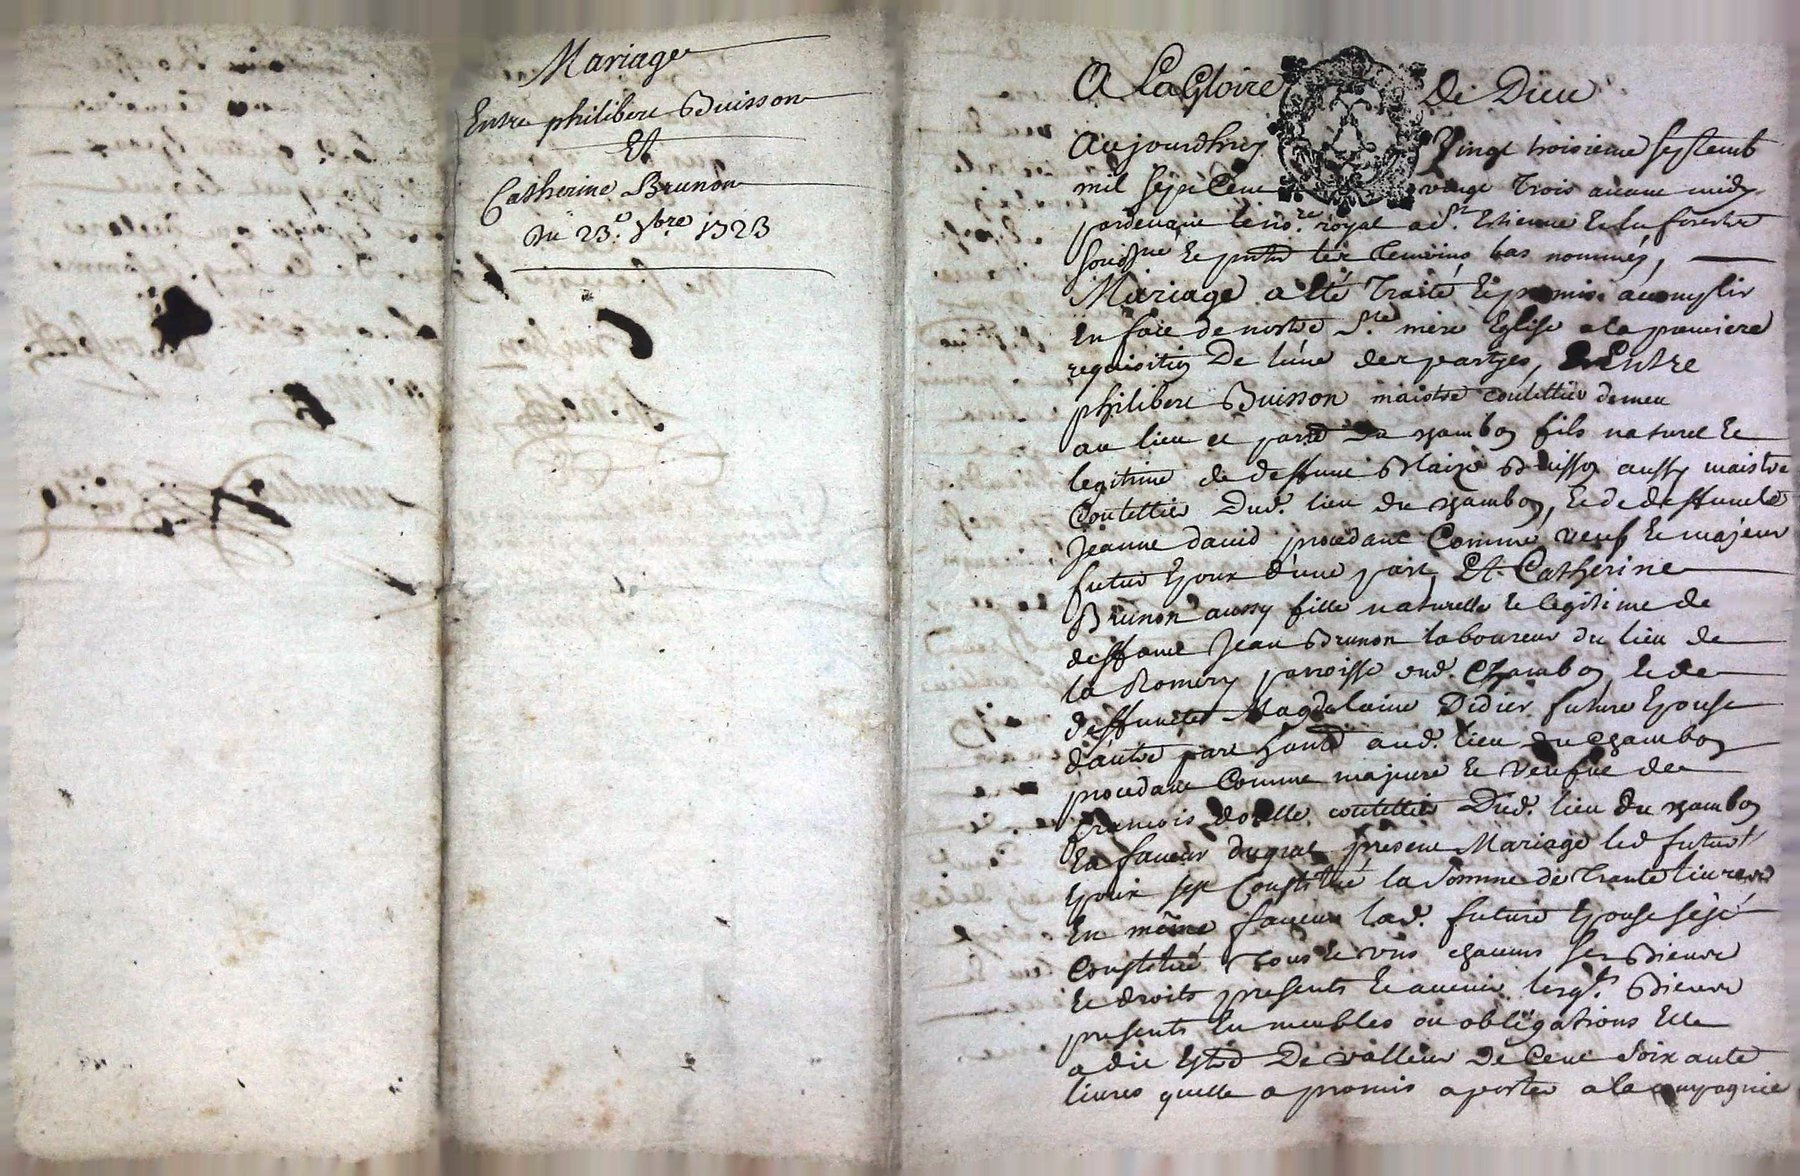 Mariage
Entre philibert Buisson
Et
Catherine Brunon
Du 23.e 7bre 1723
A La Gloire De Dieu
Aujourdhuy Vingt troisieme septemb
mil sept Cent vingt Trois avant midy
pardevant le no.re royal a St Etienne
soub.ne et les temoins bas nommés,
Mariage a eté Traité et promis acomplir
en face de nostre Ste mere Eglise a la premiere
requisition De lune des partyes, Entre
philibert Buisson maistre coutellier demeu
au lieu et parr du chambon fils naturel et
legitime de deffunt Blaize Buisson aussy maistre
Coutellier Dud. lieu du chambon, et de deffuncte
Jeanne david procedant Comme veuf et majeur
futur epoux d'une part, Et Catherine
Brunon aussy fille naturelle et legitime de
deffunt Jean Brunon laboureur du lieu de
la Romery parroisse dud. Chambon et de
deffuncte Magdelaine Didier future epouse
d'autre part aud. lieu du chambon
procedant Comme majeure et veufve de
francois coutellier Dud. lieu du chambon
En faveur duquel present Mariage led futur
epoux sest Constitué la Somme de Trante livres
En même faveur lad. future epouse sest
Constitué Tous et uns chacuns ses Biens
et droits presents et avenir lesq.ls Biens
presents en meubles ou obligations Elle
a dit estre De valleur de Cent Soixante
livres quelle a promis aporter a la compagnie